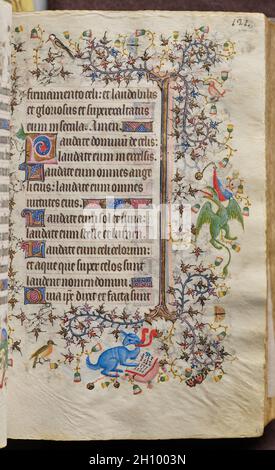 121.
firmamento celi: et laudabilis
et gloriosus et superexaltatus
eum in secula. Amen.
Laudate dominū de celis:
laudate eum in excelsis.
Laudate eum omnes ange
laudate eum omnes
Laudate eum sol et luna:
laudate eum
Laudate eum celi celorum:
et aque que super celos sunt
laudent nomen domini.
Quia ip̄e dixit et facta sunt
alamy
Image ID: 2H1003N
www.alamy.com